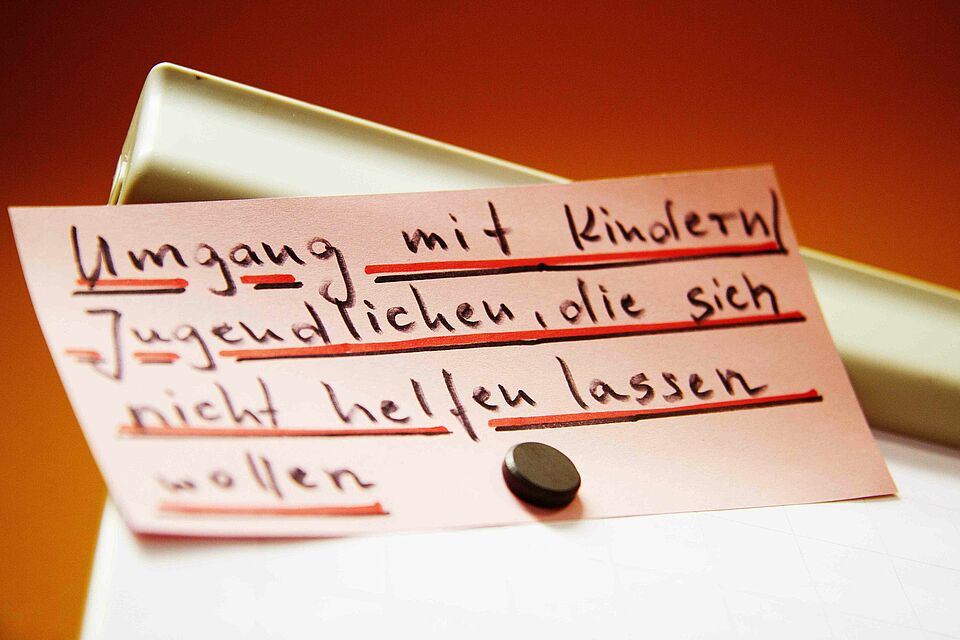 Umgang mit Kindern/
Jugendlichen, die sich
nicht helfen lassen
wollen